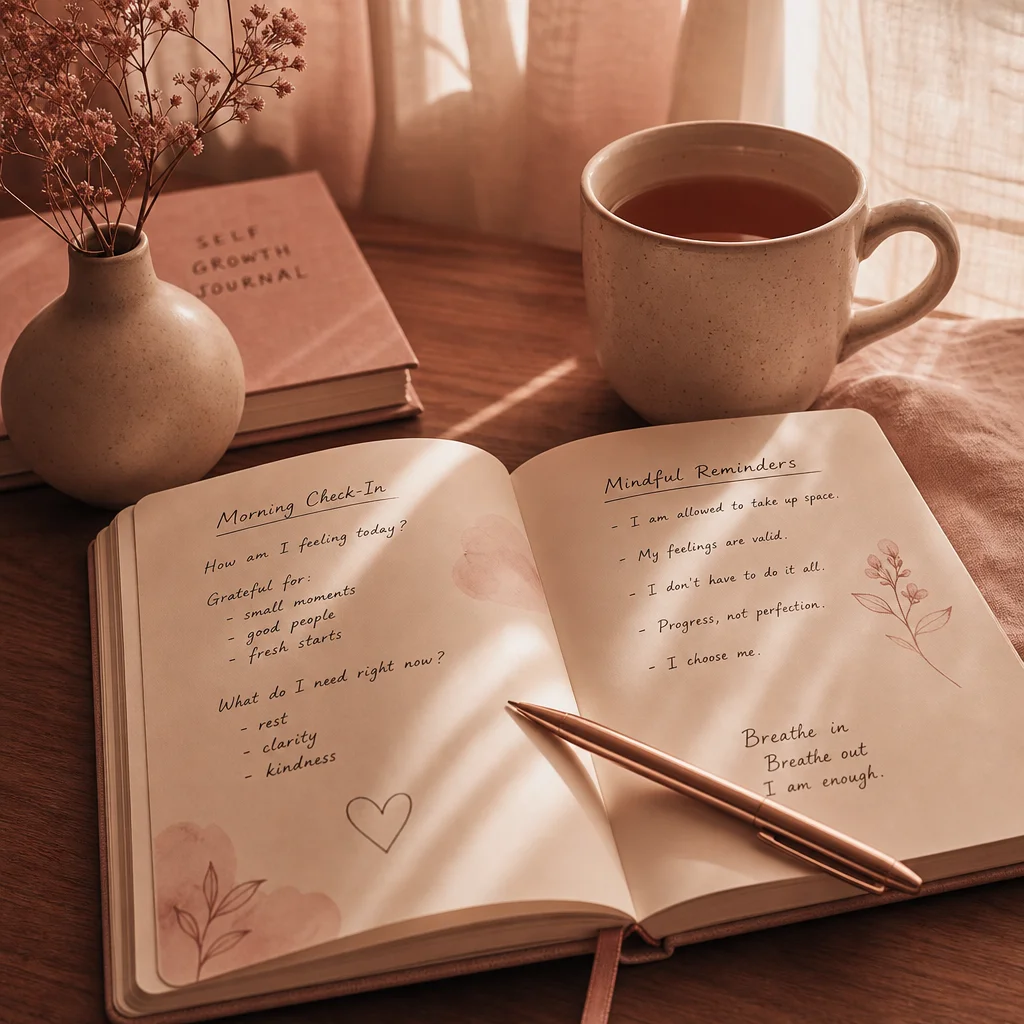 SELF
GROWTH
JOURNAL
Morning Check-In
How am I feeling today?
Grateful for:
- small moments
- good people
- fresh starts
What do I need right now?
- rest
- clarity
- kindness
Mindful Reminders
- I am allowed to take up space.
- My feelings are valid.
- I don't have to do it all.
- Progress, not perfection.
- I choose me.
Breathe in
Breathe out
I am enough.